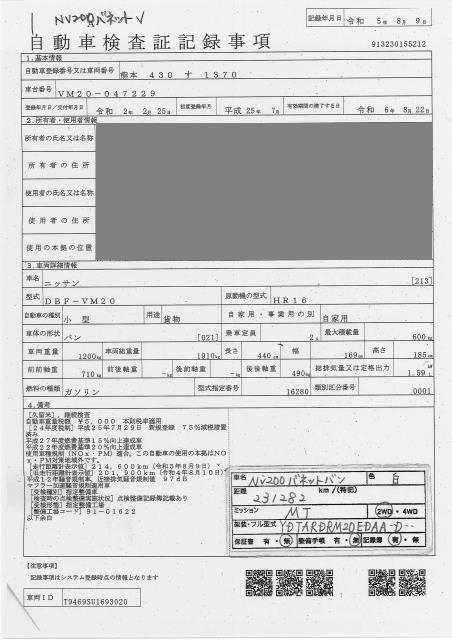 NV200バネットV
記録年月日 令和 5年 8月 9日
自動車検査証記録事項
913230155212
1.基本情報
自動車登録番号又は車両番号 熊本 430 す 1370
車台番号 VM20-047229
登録年月日/交付年月日 令和 2年 2月 25日 初度登録年月 平成 25年 7月 有効期間の満了する日 令和 6年 8月 22日
2.所有者・使用者情報
所有者の氏名又は名称
所有者の住所
使用者の氏名又は名称
使用者の住所
使用の本拠の位置
3.車両詳細情報
車名 ニッサン [213]
型式 DBF-VM20 原動機の型式 HR16
自動車の種別 小型 用途 貨物 自家用・事業用の別 自家用
車体の形状 バン [021] 乗車定員 2人 最大積載量 600kg
車両重量 1200kg 車両総重量 1910kg 長さ 440cm 幅 169cm 高さ 185cm
前前軸重 710kg 前後軸重 -kg 後前軸重 -kg 後後軸重 490kg 総排気量又は定格出力 1.59L
燃料の種類 ガソリン 型式指定番号 16280 類別区分番号 0001
4.備考
[久留米], 継続検査
自動車重量税額 ¥5,000 本則税率適用
[24年度税制] 平成25年7月29日 新規登録 75%減税措置
済み
平成27年度燃費基準15%向上達成車
平成22年度燃費基準20%向上達成車
使用車種規制(NOx・PM)適合, この自動車の使用の本拠はNO
x・PM対策地域外です。
[走行距離計表示値] 214,600km(令和5年8月9日)
[旧走行距離計表示値] 201,900km(令和4年8月10日)
平成12年騒音規制車, 近接排気騒音規制値 97dB
マフラー加速騒音規制適用車
[受検種別] 指定整備車
[検査時の点検整備実施状況] 点検整備記録簿記載あり
[受検形態] 指定整備工場
[整備工場コード] 91-01622
以下余白
車名 NV200バネットバン 色 白
距離 231282 km/(特記)
ミッション MT 2WD・4WD
架装・フル型式 YDTARDRM20EDAA-D--
保証書 有・無 整備手帳 有・無 記録簿 有・無
【注意事項】
記録事項はシステム登録時点の情報となります
車両ID T9469SU1693020